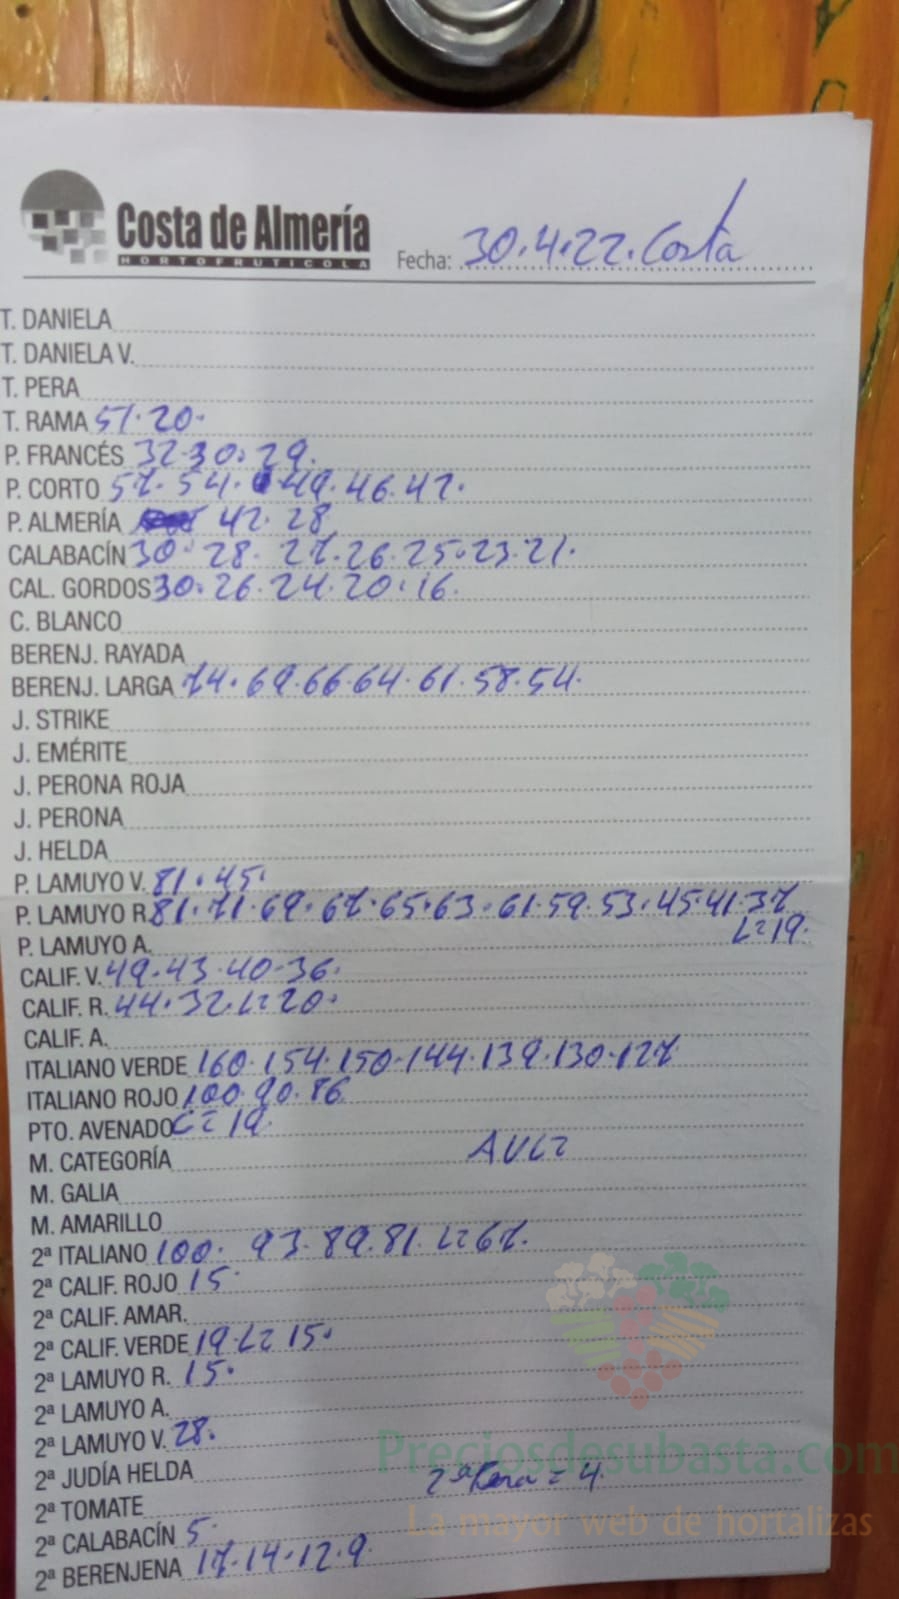 Costa de Almería
HORTOFRUTICOLA
Fecha: 30.4.22. Costa
T. DANIELA
T. DANIELA V.
T. PERA
T. RAMA 51.20.
P. FRANCÉS 32.30.29.
P. CORTO 57.54. 49.46.42.
P. ALMERÍA 42.28
CALABACÍN 30.28.27.26.25.23.21.
CAL. GORDOS 30.26.24.20.16.
C. BLANCO
BERENJ. RAYADA
BERENJ. LARGA 74.69.66.64.61.58.54.
J. STRIKE
J. EMÉRITE
J. PERONA ROJA
J. PERONA
J. HELDA
P. LAMUYO V. 81.45.
P. LAMUYO R. 81.71.69.67.65.63.61.59.53.45.41.37
L=19.
P. LAMUYO A.
CALIF. V. 49.43.40.36.
CALIF. R. 44.32.L=20.
CALIF. A.
ITALIANO VERDE 160.154.150.144.139.130.127
ITALIANO ROJO 100.90.86
PTO. AVENADO L=19.
M. CATEGORÍA
M. GALIA
M. AMARILLO
2ª ITALIANO 100. 93.89.81.L=67.
2ª CALIF. ROJO 15.
2ª CALIF. AMAR.
2ª CALIF. VERDE 19.L=15.
2ª LAMUYO R. 15.
2ª LAMUYO A.
2ª LAMUYO V. 28.
Preciosdesubasta.com
2ª JUDÍA HELDA
2ª Pera = 4
2ª TOMATE
La mayor web de hortalizas
2ª CALABACÍN 5.
2ª BERENJENA 17.14.12.9